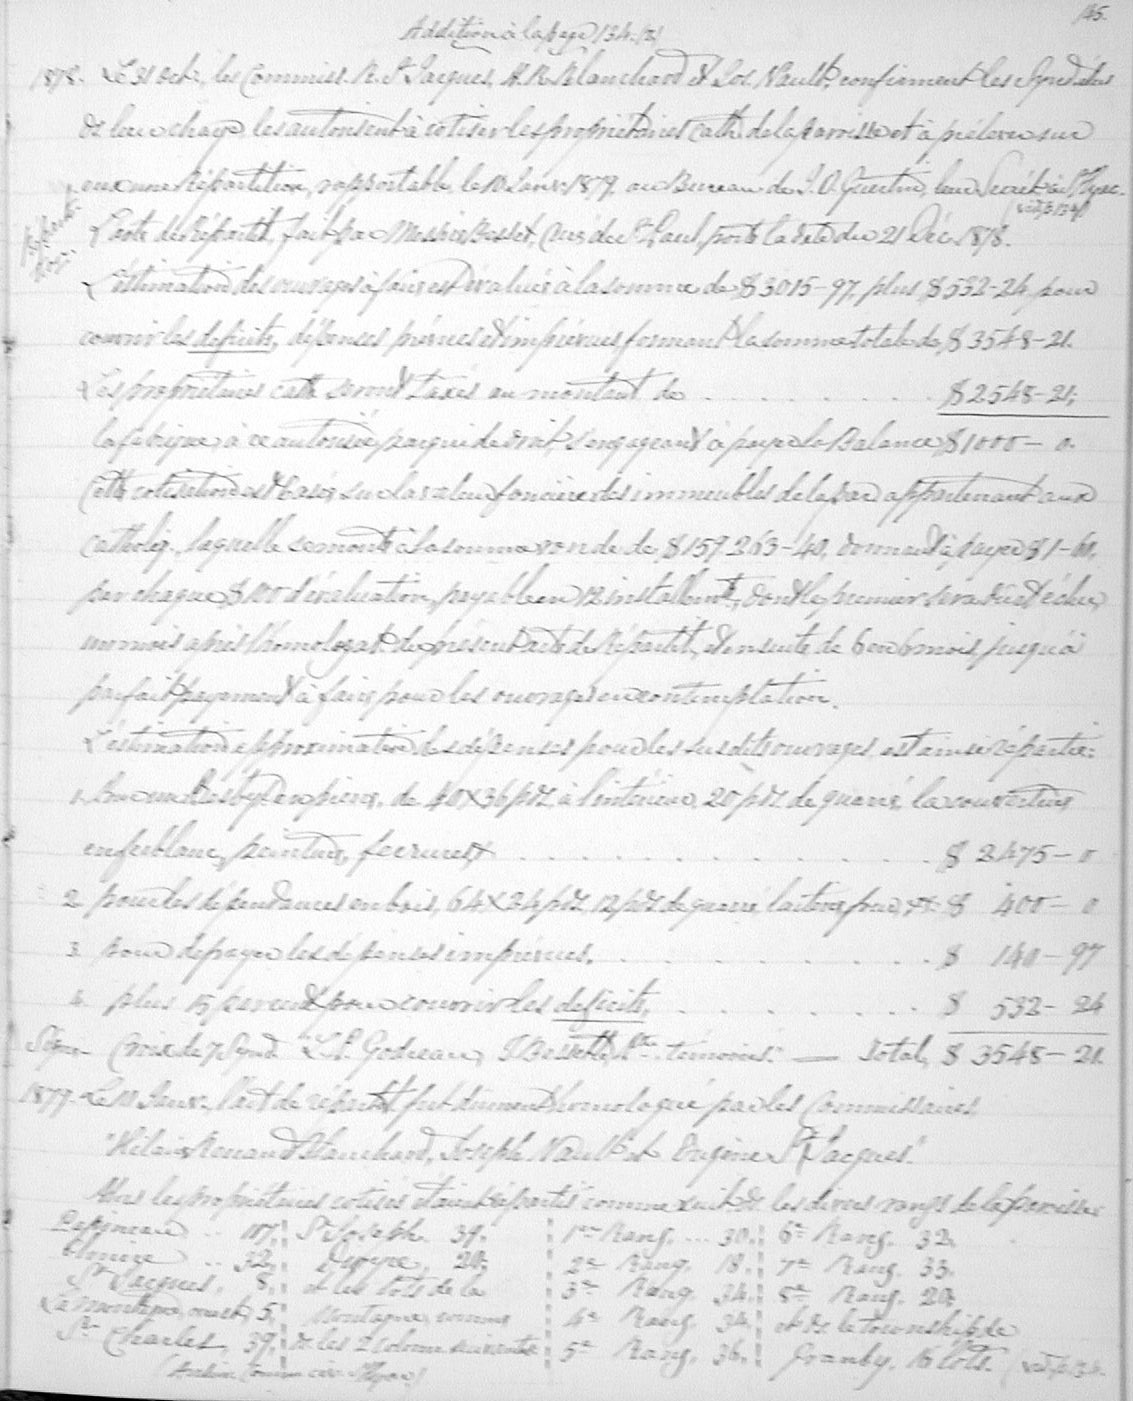 145.
Addition à la page 134. (a)
1878. Le 31 Oct., les Commiss. R. St Jacques, H. R. Blanchard & Jos. Nault confirment les Syndics
de leur charge, les autorisent à cotiser les propriétaires cath. de la paroisse et à prélever sur
eux une Répartition, rapportable, le 10 Janv. 1879, au Bureau de J. O. Guertin, leur Secrét. à St Hyac.
(vid. p. 134)
Réparti-
tion.
L'acte de Répartit. fait par Messire Bessette, Curé de St Paul, porte la date du 21 Déc. 1878.
L'estimation des ouvrages à faire est évaluée à la somme de $3015-97, plus $532-24, pour
couvrir les deficits, dépenses prévues & imprévues formant la somme totale de $3548-21.
Les propriétaires cath. seront taxés au montant de . . . . . . . $2548-21;
la fabrique, à ce autorisée par qui de droit, s'engageant à payer la Balance $1000- 0.
Cette cotisation est basée sur la valeur foncière des immeubles de la par. appartenant aux
catholiq., laquelle se monte à la somme ronde de $159.263-40, donnant à payer $1-60.
par chaque $100 d'évaluation, payable en 12 installments, dont le premier sera dû et échu,
un mois après l'homologat. du présent acte de Répartit., et ensuite de 6 en 6 mois, jusqu'à
parfait payement à faire pour les ouvrages en contemplation.
L'estimation approximative des dépenses pour les susdits ouvrages, est ainsi répartie:
1. Pour un Presbytère en pierre, de 40 X 36 pds à l'intérieur, 20 pds de quarré, la couverture
en ferblanc, peinture, ferrures & . . . . . . . . $ 2475- 0
2. pour les dépendances en bois, 64 X 24 pds, 12 pds de quarré, &c. $ 400- 0
3. pour depayer les dépenses imprévues. . . . . . . . $ 140-97
4. plus 15 par cent pour couvrir les deficits, . . . . . . . $ 532- 24
Signé- Croix de 7 Synd. "L. P. Godreau, J. Bessette, Ptre témoins." — Total, $ 3548-21.
1879. Le 10 Janv. l'act. de répartit. fut dûment homologué par les Commissaires
"Hilaire Renaud Blanchard, Joseph Nault et Eugène St Jacques."
Alors les propriétaires cotisés étaient répartis comme suit ds. les divers rangs de la paroisse
Papineau .. 107. St Joseph. 39. 1er Rang. ... 30. 6e Rang. 32.
.. 32. 20. 2e Rang. 18. 7e Rang. 33.
St Jacques, 8. et les lots de la 3e Rang. 34. 8e Rang. 20.
La Montagne, ouest, 5. Montagne, comme 4e Rang. 34. et ds. le township de
St Charles, 39. ds les 2 colonn. suivantes 5e Rang. 36. Granby, 16 lots. (vid. p. 134.
(Archiv. Comm. civ. St Hyac.)